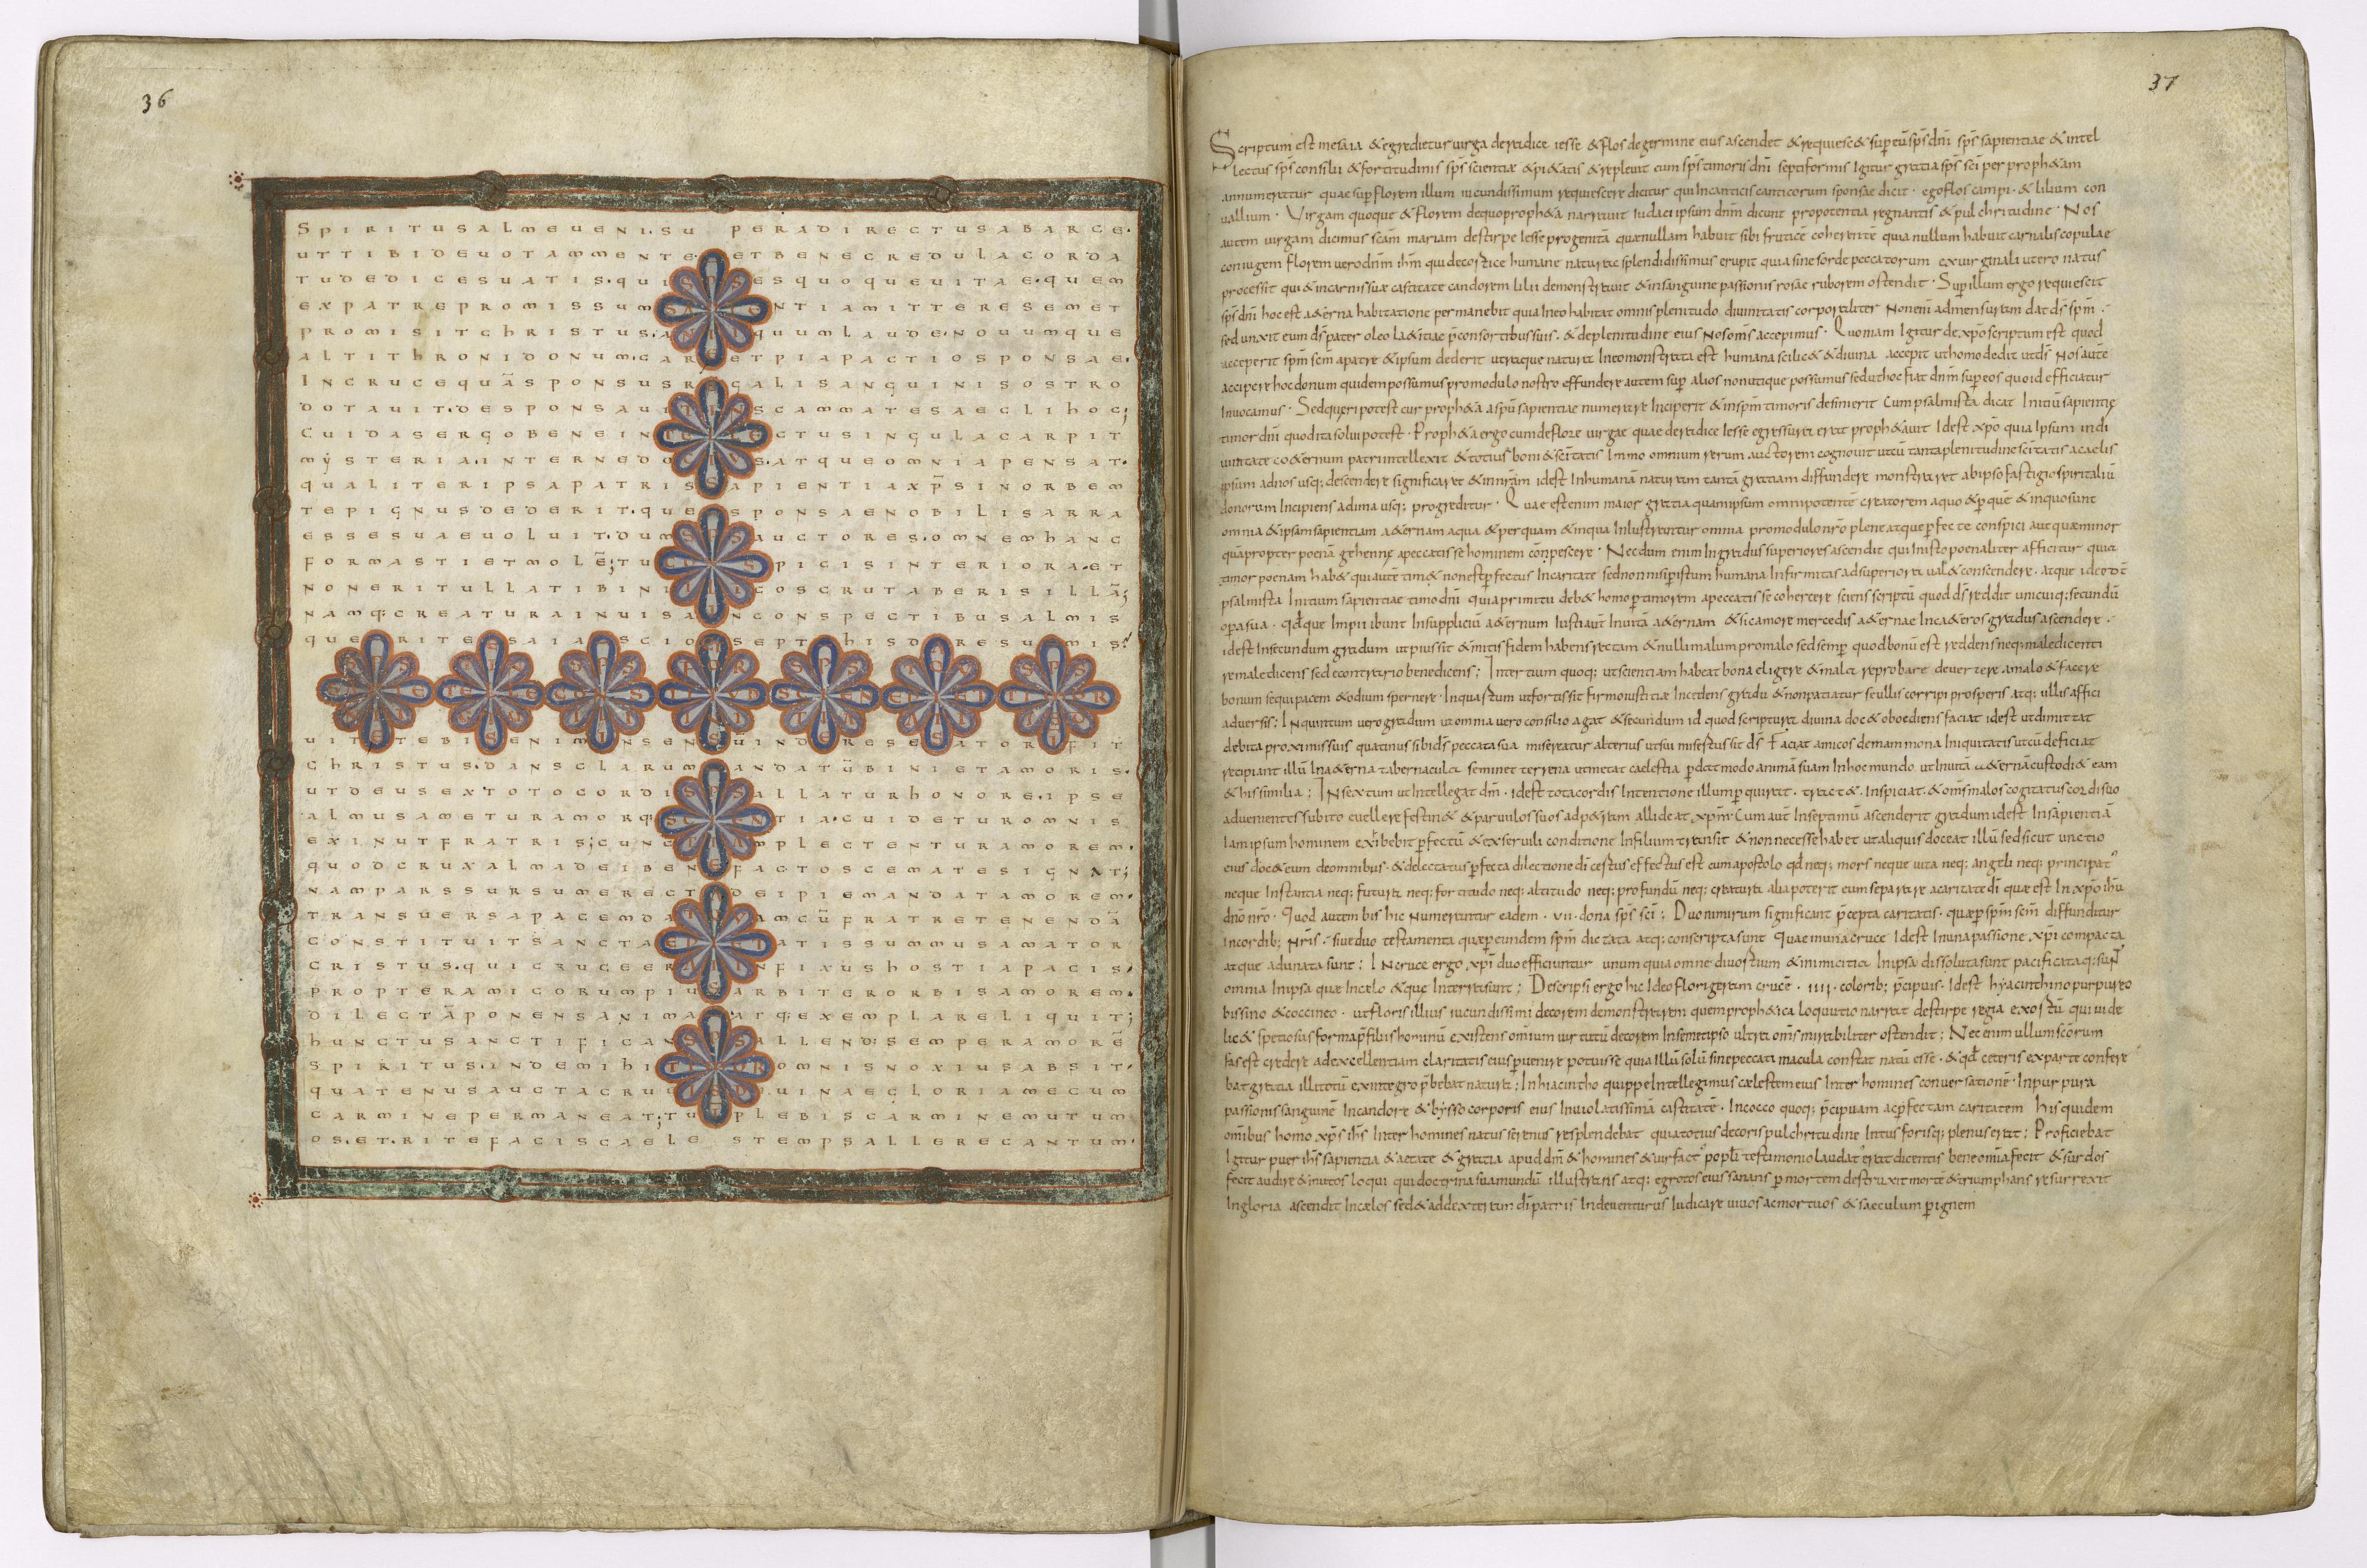 36
SPIRITUS ALME UENI. SUPERA DIRECTUS AB ARCE.
UT TIBI DEUOTAM MENTE ET BENE CREDULA CORDA
EX PATRE PROMISSUM
PROMISIT CHRISTUS LAUDE. NOUUMQUE
ALTITHRONI DONUM ET PIA PACTIO SPONSAE.
IN CRUCE QUĀ SPONSUS REGALI SANGUINIS OSTRO
DOTAUIT. DESPONSAUIT SCAMMATE SAECLI HOC;
CUI DAS ERGO BENE INTELLECTU SINGULA CARPIT
MYSTERIA. INTERNE ATQUE OMNIA PENSAT.
QUALITER IPSA PATRIS SAPIENTIA XPS IN ORBEM
TE PIGNUS DEDERIT. QUE SPONSAE NOBILIS ARRA
ESSE SUAE UOLUIT. DUM AUCTOR ES. OMNEM HANC
FORMAST ET MOLĒ; TU INTERIORA. ET
NON ERIT ULLA TIBI SCRUTABERIS ILLĀ;
NAMQ: CREATURA INUISA IN CONSPECTIBUS ALMIS
CHRISTUS. DANS CLARUM MANDATŪ BINI ET AMORIS.
UT DEUS EX TOTO CORDIS PSALLATUR HONORE. IPSE
ALMUS AMETUR AMORQ: SCIENTIA. CUI DETUR OMNIS
EXIN UT FRATRIS; CUNC AMPLECTENTUR AMOREM.
QUOD CRUX ALMA DEI BENE FACTO SCEMATE SIGNAT;
NAM PARS SURSUM ERECTA DEI PIE MANDAT AMOREM.
TRANSUERSA PACEM DAT CŪ FRATRE TENENDĀ
CONSTITUIT SANCTAE PIETATIS SUMMUS AMATOR
CRISTUS. QUI CRUCE ERAT INFIXUS HOSTIA PACIS.
PROPTER AMICORUM PIUS ARBITER ORBIS AMOREM.
DILECTĀ PONENS ANIMA ATQ: EXEMPLA RELIQUIT;
HUNC TU SANCTIFICANS PSALLEND: SEMPER AMORĒ
SPIRITUS. INDE MIHI TIMOR OMNIS NOXIUS ABSIT.
QUATENUS AUCTA CRUCIS DIUINAE GLORIA MECUM
CARMINE PERMANEAT; TU PLEBIS CARMINE MUTUM
OS. ET. RITE FACIS CAELESTEM PSALLERE CANTUM.
37
Scriptum est in esaia & egredietur uirga de radice iesse & flos de germine eius ascendet & requiesc& sup eū sps dni sps sapientiae & intel
lectus sps consilii & fortitudinis sps scientiae & pi&atis & repleuit eum sps timoris dni septiformis Igitur gratia sps sci per proph&am
annumeratur quae sup florem illum iucundissimum requiescere dicitur qui In canticis canticorum sponsae dicit. ego flos campi. & lilium con
uallium. Uirgam quoque & florem de quo proph&a narrauit Iudaei ipsum dnm dicunt pro potentia regnantis & pulchritudine. Nos
autem uirgam dicimus scam mariam de stirpe Iesse progenitā quae nullam habuit sibi fruticē coherentē quia nullum habuit carnalis copulae
coniugem florem uero dnm ihm qui de cortice humane naturae splendidissimus erupit quia sine sorde peccatorum ex uirginali utero natus
processit qui & in carnis suae castitate candorem lilii demonstrauit & in sanguine passionis rosae ruborem ostendit. Sup illum ergo requiescit
sps dni hoc est a&erna habitatione permanebit quia In eo habitat omnis plenitudo diuinitatis corporaliter Non eni ad mensuram dat ds spm.
sed unxit eum ds pater oleo la&itiae p consortibus suis. & de plenitudine eius Nos oms accepimus. Quoniam Igitur de xpo scriptum est quod
acceperit spm scm a patre & ipsum dederit utraque natura In eo monstrata est humana scilic& & diuina accepit ut homo dedit ut ds Nos autē
accipere hoc donum quidem possumus pro modulo nostro effundere autem sup alios non utique possumus sed ut hoc fiat dnm sup eos quo id efficiatur
Inuocamus. Sed queri potest cur proph&a a spu sapientiae numerare Inciperit & in spm timoris desinerit Cum psalmista dicat Initiū sapientię
timor dni quod ita solui potest. Proph&a ergo cum de flore uirgae quae de radice Iesse egressura erat proph&auit Id est xpo quia Ipsum in di
uinitate co&ernum patri intellexit & totius boni & scitatis Immo omnium rerum auctorem cognouit ut cū tanta plenitudine scitatis a caelis
ipsum ad nos usq; descendere significaret & in nram id est In humanā naturam tantā gratiam diffundere monstraret ab ipso fastigio spiritaliū
donorum Incipiens ad ima usq; progreditur. Quae est enim maior gratia quam ipsum omnipotentē creatorem a quo & p quē & in quo sunt
omnia & ipsam sapientiam a&ernam a qua & per quam & in qua Inlustrantur omnia pro modulo nro plene atque pfecte conspici aut quae minor
quā propter poenā gehennę a peccatis se hominem conpescere. Necdum enim In gradus superiores ascendit qui In isto poenaliter afficitur quia
timor poenam hab& qui autē tim& non est pfectus In caritate sed non nisi p istum humana Infirmitas ad superiora ual& conscendere. atque ideo dt
psalmista Initium sapientiae timo dni quia primitu deb& homo p timorem a peccatis se cohercere sciens scriptū quod ds reddit unicuiq; secundū
opa sua. qdque Impii ibunt In suppliciū a&ernum Iusti aut In uitā a&ernam & sic amore mercedis a&ernae In ca&eros gradus ascendere.
id est In secundum gradum ut pius sit & mitis fidem habens rectam & nulli malum pro malo sed semp quod bonū est reddens neq; maledicenti
remaledicens sed e contrario benedicens; In tertium quoq; ut scientiam habeat bona eligere & mala reprobare deuertere a malo & facere
bonum sequi pacem & odium spernere. In quartum ut fortis sit firmo iustitiae Incedens gradu & non patiatur se ullis corripi prosperis atq; ullis affici
aduersis; IN quintum uero gradum ut omnia uero consilio agat & secundum id quod scriptura diuina doc& oboediens faciat id est ut dimittat
debita proximis suis quatinus sibi ds peccata sua misereatur alterius ut sui misertus sit ds Faciat amicos de mammona Iniquitatis ut cū deficiat
recipiant illū In a&erna tabernacula seminet terrena ut metat caelestia pdat modo animā suam In hoc mundo ut In uitā a&ernā custodi& eam
& his similia; IN sextum ut Intellegat dm. id est tota cordis Intentione illum pquirat. tract&. Inspiciat. & oms malos cogitatus cordi suo
aduenientes subito euellere festin& & paruulos suos ad p&ram allideat .xpm. Cum aut In septimū ascenderit gradum id est In sapientiā
Iam ipsum hominem exibebit pfectū & ex seruili conditione In filium transit & non necesse habet ut aliquis doceat illū sed sicut unctio
eius doc& eum de omnibus. & delectatus pfecta dilectione di certus effectus est cum apostolo qd neq; mors neque uita neq; angeli neq; principat'
neque Instantia neq; futura neq; fortitudo neq; altitudo neq; profundū neq; creatura alia poterit eum separare a caritate di quae est In xpo ihu
dno nro. Quod autem bis hic Numerantur eadem .VII. dona sps sci; Duo nimirum significant pcepta caritatis. quae p spm scm diffunditur
In cordib; Nris. siue duo testamenta quae p eundem spm dictata atq; conscripta sunt Quae in una cruce Id est In una passione xpi compacta
atque adunata sunt; IN cruce ergo xpi duo efficiuntur unum quia omne diuortium & inimicitia In ipsa dissoluta sunt pacificataq; sunt
omnia In ipsa quae In caelo & quae In terra sunt; Descripsi ergo hic Ideo florigeram crucē .IIII. colorib; pcipuis. Id est hyacinthino purpureo
bissino & coccineo. ut floris illius iucundissimi decorem demonstrarem quem proph&ica loquutio narrat de stirpe regia exortū qui uide
lic& spetiosus forma p filiis hominū existens omnium uirtutū decorem In semetipso ultra oms mirabiliter ostendit; Nec enim ullum scorum
fas est credere ad excellentiam claritatis eius puenire potuisse quia illū solū sine peccati macula constat natū esse. & qd ceteris ex parte confere
bat gratia illi totū ex integro pbebat natura; In hiacintho quippe Intellegimus caelestem eius Inter homines conuersationē. In purpura
passionis sanguinē In candore & bysso corporis eius Inuiolatissimā castitatē. In cocco quoq; pcipuam ac pfectam caritatem His quidem
omibus homo xps ihs Inter homines natus serenus resplendebat quia totius decoris pulchritudine Intus forisq; plenus erat; Proficiebat
Igitur puer ihs sapientia & aetate & gratia apud dm & homines & uir fact' popli testimonio laudat' erat dicentis bene omia fecit & surdos
fecit audire & mutos loqui qui doctrina sua mundū illustrans atq; egrotos eius sanans p mortem destruxit morte & triumphans resurrexit
In gloria ascendit In caelos sed& ad dexteram di patris Inde uenturus Iudicare uiuos ac mortuos & saeculum p ignem